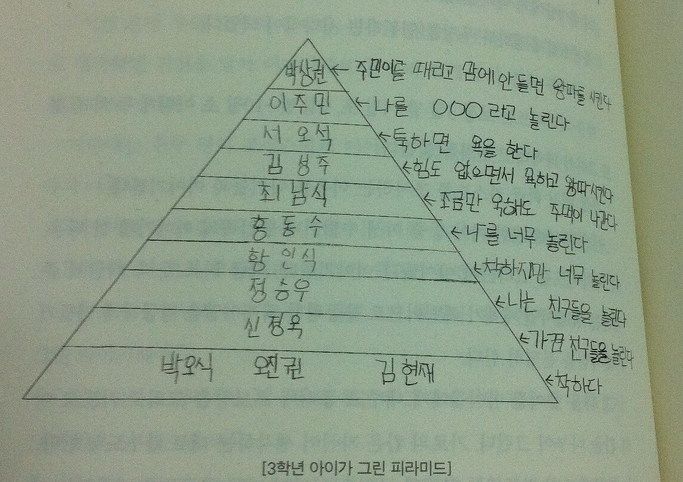 박상권 ← 주민이를 때리고 맘에 안들면 왕따를 시킨다
이주민 ← 나를 OOO 라고 놀린다
서오석 ← 툭하면 욕을 한다
김성주 ← 힘도 없으면서 욕하고 왕따시킨다
최남식 ← 조금만 욕해도 주먹이 나간다
홍동수 ← 나를 너무 놀린다
황인식 ← 착하지만 너무 놀린다
정승우 ← 나는 친구들을 놀린다
신정옥 ← 가끔 친구들을 놀린다
박오식 오진권 김현재 ← 착하다
[3학년 아이가 그린 피라미드]